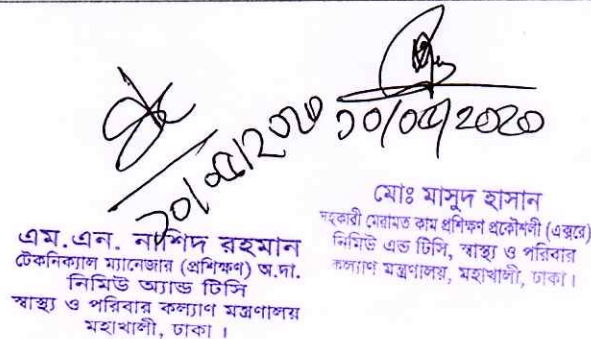 ২০/০৫/২০২০
২০/০৫/২০২০
এম.এন. নাশিদ রহমান
টেকনিক্যাল ম্যানেজার (প্রশিক্ষণ) অ.দা.
নিমিউ অ্যান্ড টিসি
স্বাস্থ্য ও পরিবার কল্যাণ মন্ত্রণালয়
মহাখালী, ঢাকা।
মোঃ মাসুদ হাসান
সহকারী মেরামত কাম প্রশিক্ষণ প্রকৌশলী (এক্সরে)
নিমিউ এন্ড টিসি, স্বাস্থ্য ও পরিবার
কল্যাণ মন্ত্রণালয়, মহাখালী, ঢাকা।